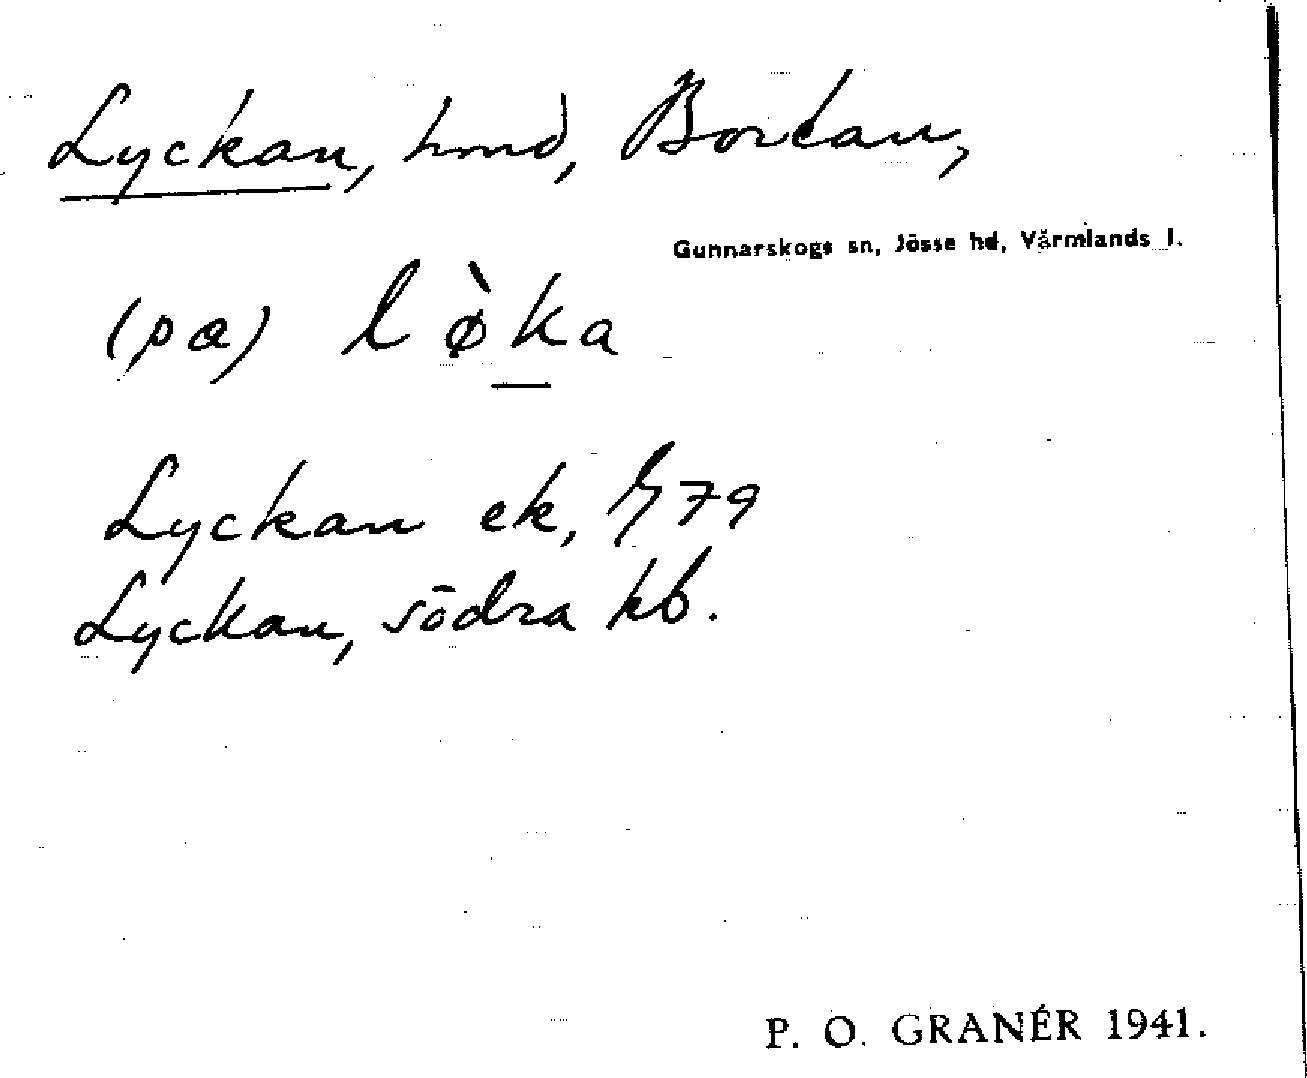 Lyckan, hmd, Bortan,
Gunnarskogs sn, Jösse hd, Värmlands l.
(pa) lø̀ka
Lyckan ek, G 79
Lyckan, södra kb.
P. O. GRANÉR 1941.